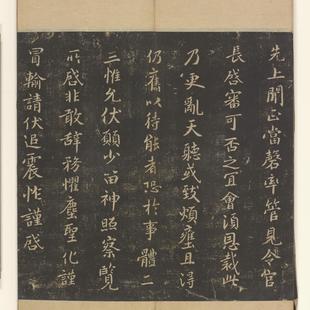 先上聞止當罄率管見令官
長啓審可否之宜會須恩裁此
乃更亂天聽或致煩壅且浔
仍舊以待能者恐於事體二
三惟允伏願少留神照察覽
所啓非敢辞務懼塵聖化謹
冒輸請伏追震悚謹啓